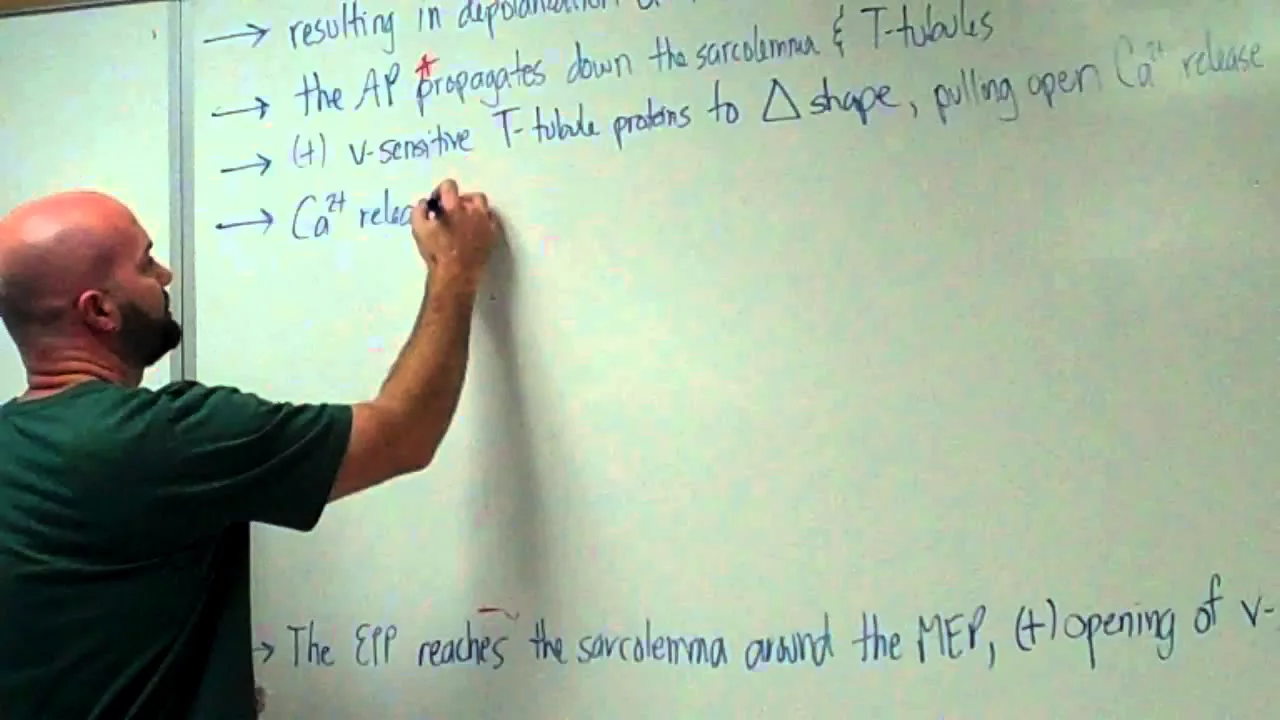 → resulting in depolarization
→ the AP * propagates down the sarcolemma & T-tubules
→ (+) v-sensitive T-tubule proteins to Δ shape, pulling open Ca²⁺ release
→ Ca²⁺ relea
→ The EPP reaches the sarcolemma around the MEP, (+) opening of v-